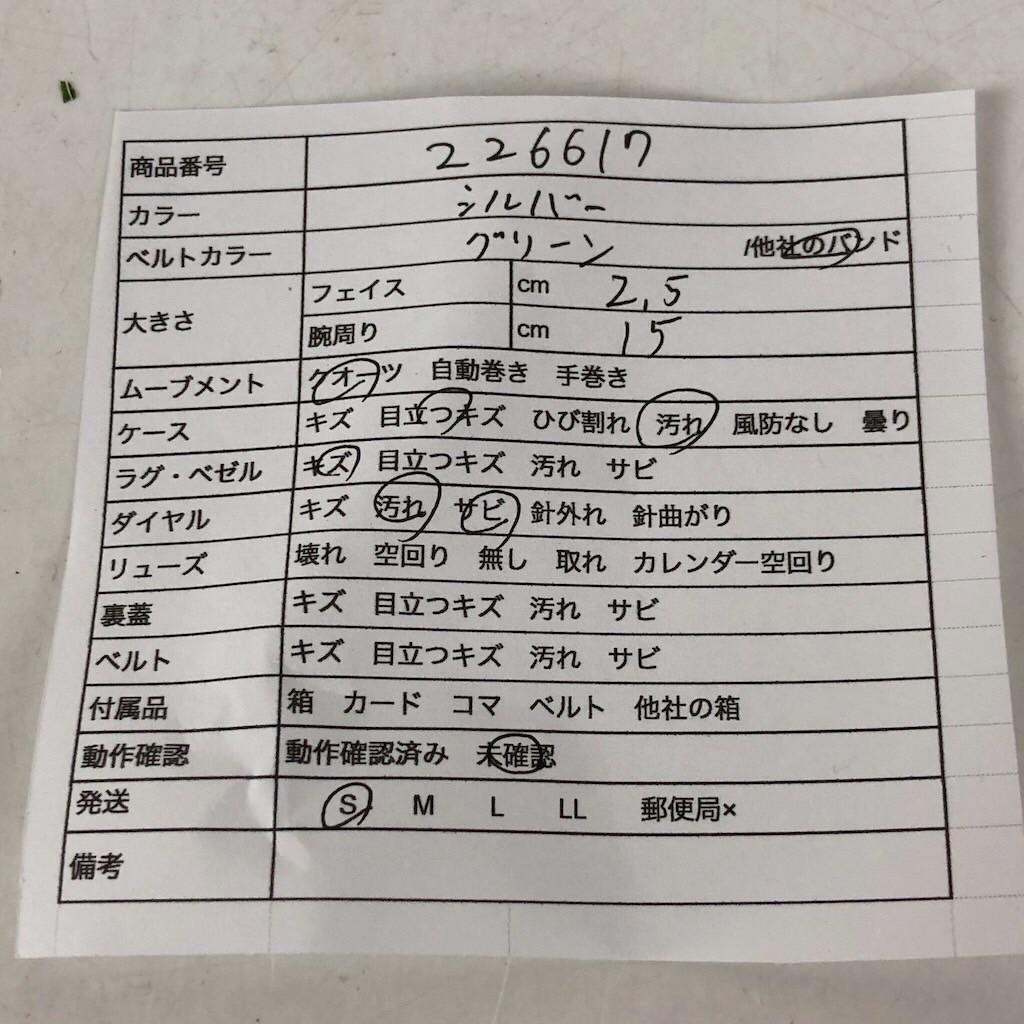 商品番号 226617
カラー シルバー
ベルトカラー グリーン /他社のバンド
大きさ フェイス cm 2.5
腕周り cm 15
ムーブメント クオーツ 自動巻き 手巻き
ケース キズ 目立つキズ ひび割れ 汚れ 風防なし 曇り
ラグ・ベゼル キズ 目立つキズ 汚れ サビ
ダイヤル キズ 汚れ サビ 針外れ 針曲がり
リューズ 壊れ 空回り 無し 取れ カレンダー空回り
裏蓋 キズ 目立つキズ 汚れ サビ
ベルト キズ 目立つキズ 汚れ サビ
付属品 箱 カード コマ ベルト 他社の箱
動作確認 動作確認済み 未確認
発送 S M L LL 郵便局×
備考